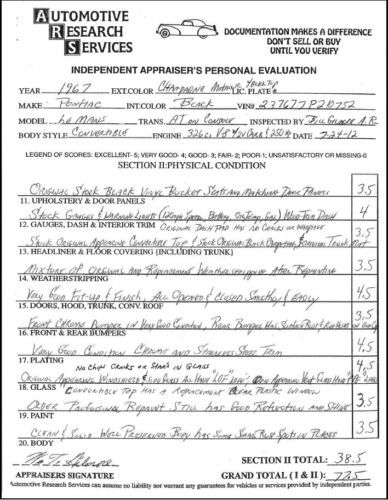 AUTOMOTIVE
RESEARCH
SERVICES
DOCUMENTATION MAKES A DIFFERENCE
DON'T SELL OR BUY
UNTIL YOU VERIFY
INDEPENDENT APPRAISER'S PERSONAL EVALUATION
YEAR 1967 EXT.COLOR Champagne LIC.PLATE #
MAKE Pontiac INT.COLOR Black VIN# 237677P210752
MODEL Le Mans TRANS. AT on Console INSPECTED BY Bill
BODY STYLE Convertible ENGINE 326ci V8 2V Carb 250 DATE 7-24-12
LEGEND OF SCORES: EXCELLENT- 5; VERY GOOD- 4; GOOD- 3; FAIR- 2; POOR-1; UNSATISFACTORY OR MISSING-0
SECTION II:PHYSICAL CONDITION
Original Stock Black Vinyl Bucket Seats and Matching Door Panels 3.5
11. UPHOLSTERY & DOOR PANELS
Stock Gauges & Warning Lights Wood Tan Dash 4
12. GAUGES, DASH & INTERIOR TRIM Original Dash Pad has no Cracks or Warpage
Stock Original Appearing Convertible Top & Stock Original Black Carpeting Trunk Mat 3.5
13. HEADLINER & FLOOR COVERING (INCLUDING TRUNK)
Mixture of Original and Replacement Weatherstripping After Repainting 3.5
14. WEATHERSTRIPPING
Very Good Fit-up & Finish All Opened & Closed Smoothly & Easily 4.5
15. DOORS, HOOD, TRUNK, CONV. ROOF
Front Chrome Bumper in Very Good Condition, Rear Bumper Has Surface Rust 3.5
16. FRONT & REAR BUMPERS
Very Good Condition Chrome and Stainless Steel Trim 4.5
17. PLATING
No Chips Cracks or Stars in Glass 4.5
Original Appearing Windshield & Side Glass All Have "LOF" Logo
18. GLASS Convertible Top has a Replacement Clear Plastic Window
Older Professional Repaint Still has Good Retention and Shine 3.5
19. PAINT
Clean & Solid Well Preserved Body has Some Small Rust Spots in Places 3.5
20. BODY
SECTION II TOTAL: 38.5
APPRAISERS SIGNATURE GRAND TOTAL ( I & II ): 72.5
Automotive Research Services can assume no liability nor warrant any guarantees for vehicles or services provided by independent parties.